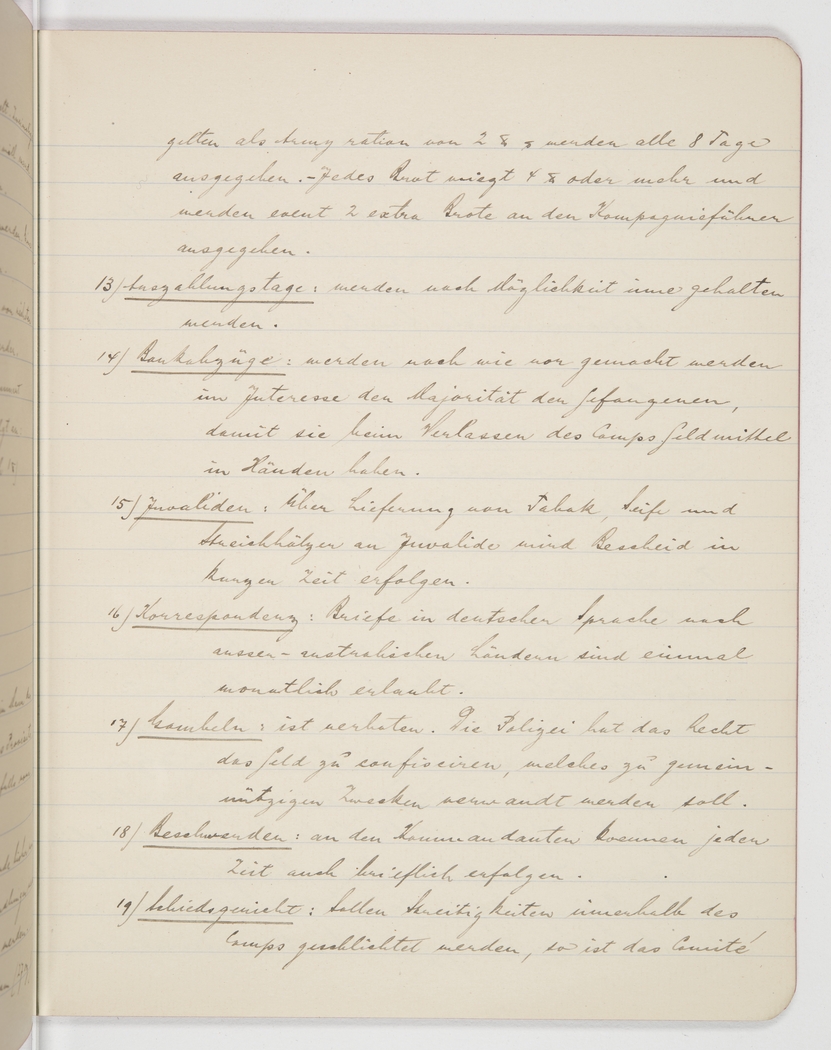 gelten als Army ration von 2 ℔ & werden alle 8 Tage
ausgegeben. - Jedes Brot wiegt 4 ℔ oder mehr und
werden event 2 extra Brote an den Kompagnieführer
ausgegeben.
13) Auszahlungstage: werden nach Möglichkeit inne gehalten
werden.
14) Bankabzüge: werden nach wie vor gemacht werden
im Interesse der Majorität der Gefangenen,
damit sie beim Verlassen des Camps Geldmittel
in Händen haben.
15) Invaliden: Über Lieferung von Tabak, Seife und
Streichhölzer an Invalide wird Bescheid in
kurzer Zeit erfolgen.
16) Korrespondenz: Briefe in deutscher Sprache nach
ausser-australischen Ländern sind einmal
monatlich erlaubt.
17) Gambeln: ist verboten. Die Polizei hat das Recht
das Geld zu confisciren, welches zu gemein-
nützigen Zwecken verwandt werden soll.
18) Beschwerden: an den Kommandanten koennen jeder
Zeit auch brieflich erfolgen.
19) Schiedsgericht: Sollen Streitigkeiten innerhalb des
Camps geschlichtet werden, so ist das Comité